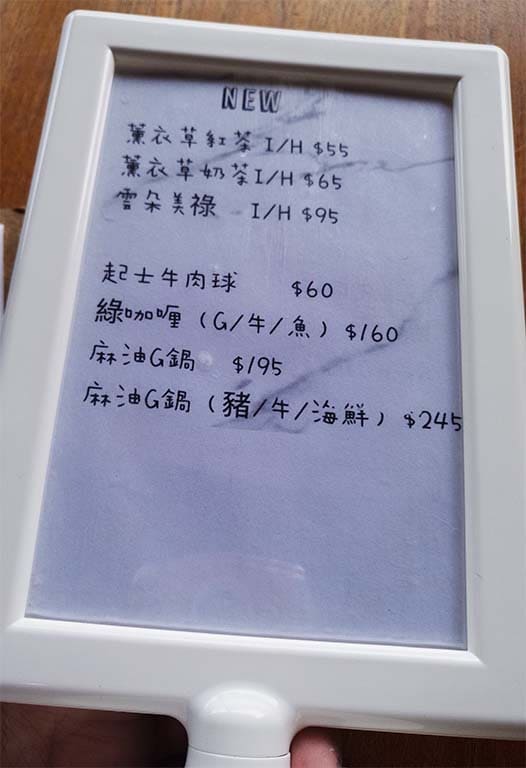 NEW
薰衣草紅茶 I/H $55
薰衣草奶茶 I/H $65
雲朵美祿 I/H $95
起士牛肉球 $60
綠咖喱（G/牛/魚）$160
麻油G鍋 $195
麻油G鍋（豬/牛/海鮮）$245